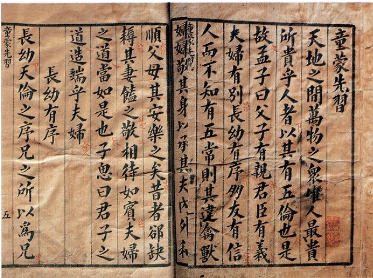 童蒙先習
天地之間萬物之衆惟人最貴
所貴乎人者以其有五倫也是
故孟子曰父子有親君臣有義
夫婦有別長幼有序朋友有信
人而不知有五常則其違禽獸
敬其身以承其夫內外和
順父母其安樂之矣昔者郤缺
耨其妻饁之敬相待如賓夫婦
之道當如是也子思曰君子之
道造端乎夫婦
長幼有序
長幼天倫之序兄之所以爲兄
童蒙先習 五